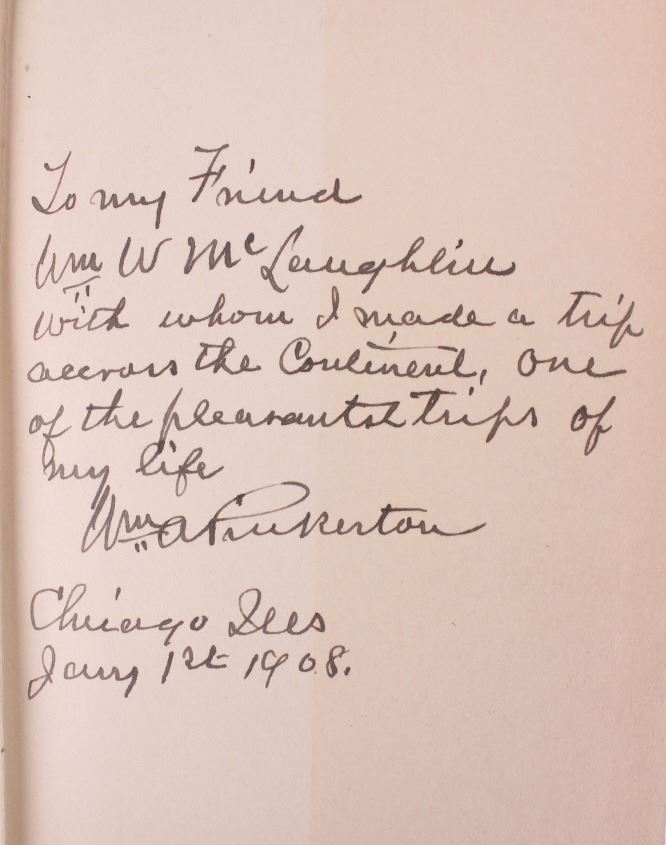 To my Friend
Wm W McLaughlin
with whom I made a trip
accross the Continent, one
of the pleasantst trips of
my life
Wm A Pinkerton
Chicago Ills
Jany 1st 1908.